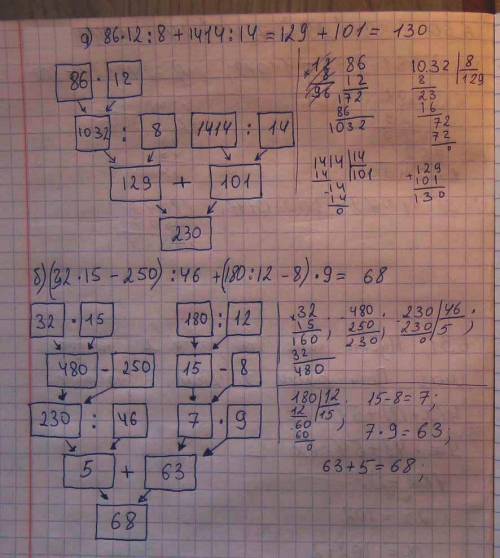 а) 86·12:8+1414:14=129+101=130
86 · 12
1032 : 8 1414 : 14
129 + 101
230
12 86 1032 | 8
8 12 8 129
96 172 23
86 16
1032 72
72
0
1414 | 14 129
14 101 +101
-14 130
14
0
б) (32·15-250):46+(180:12-8)·9= 68
32 · 15 180 : 12
480 - 250 15 - 8
230 : 46 7 · 9
5 + 63
68
32 480 230 | 46
15 250 230 5
160 230 0
32
480
180 | 12 15-8=7;
12 15
60 7·9=63;
60
0
63+5=68;